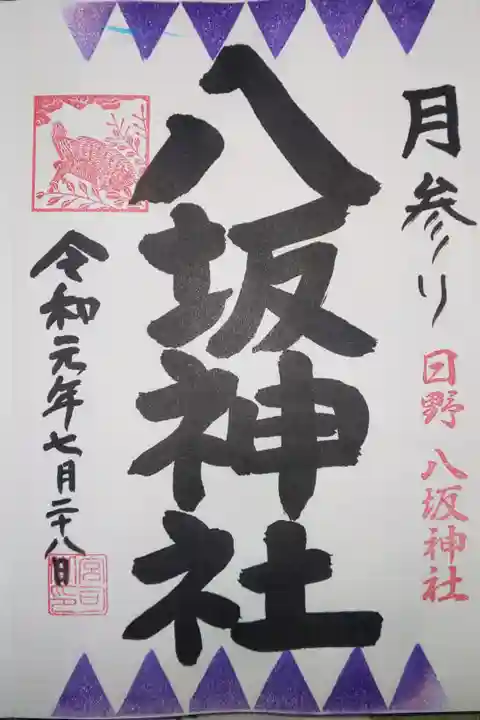 月参り
日野 八坂神社
八坂神社
令和元年七月二十八日
宮司之印